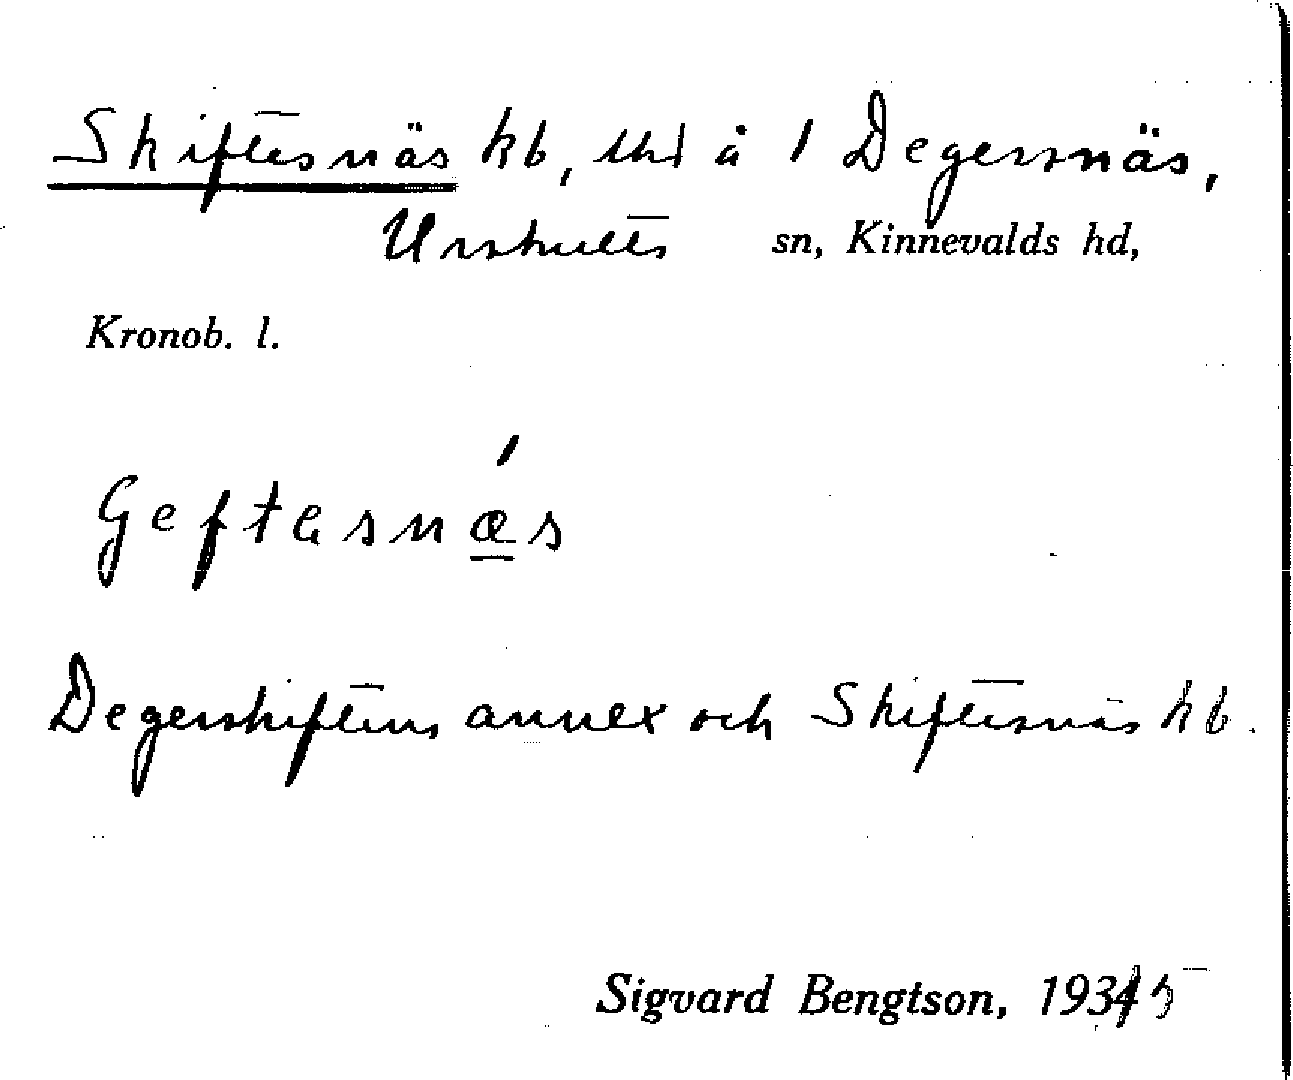 Skiftesnäs kb, und å 1 Degersnäs,
Urshults sn, Kinnevalds hd,
Kronob. l.
Geftasnæs
Degerskiftens annex och Skiftesnäs kb.
Sigvard Bengtson, 1935